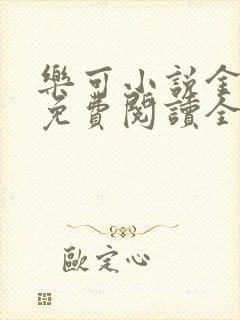 樂可小說全
免費閱讀全
歐定心